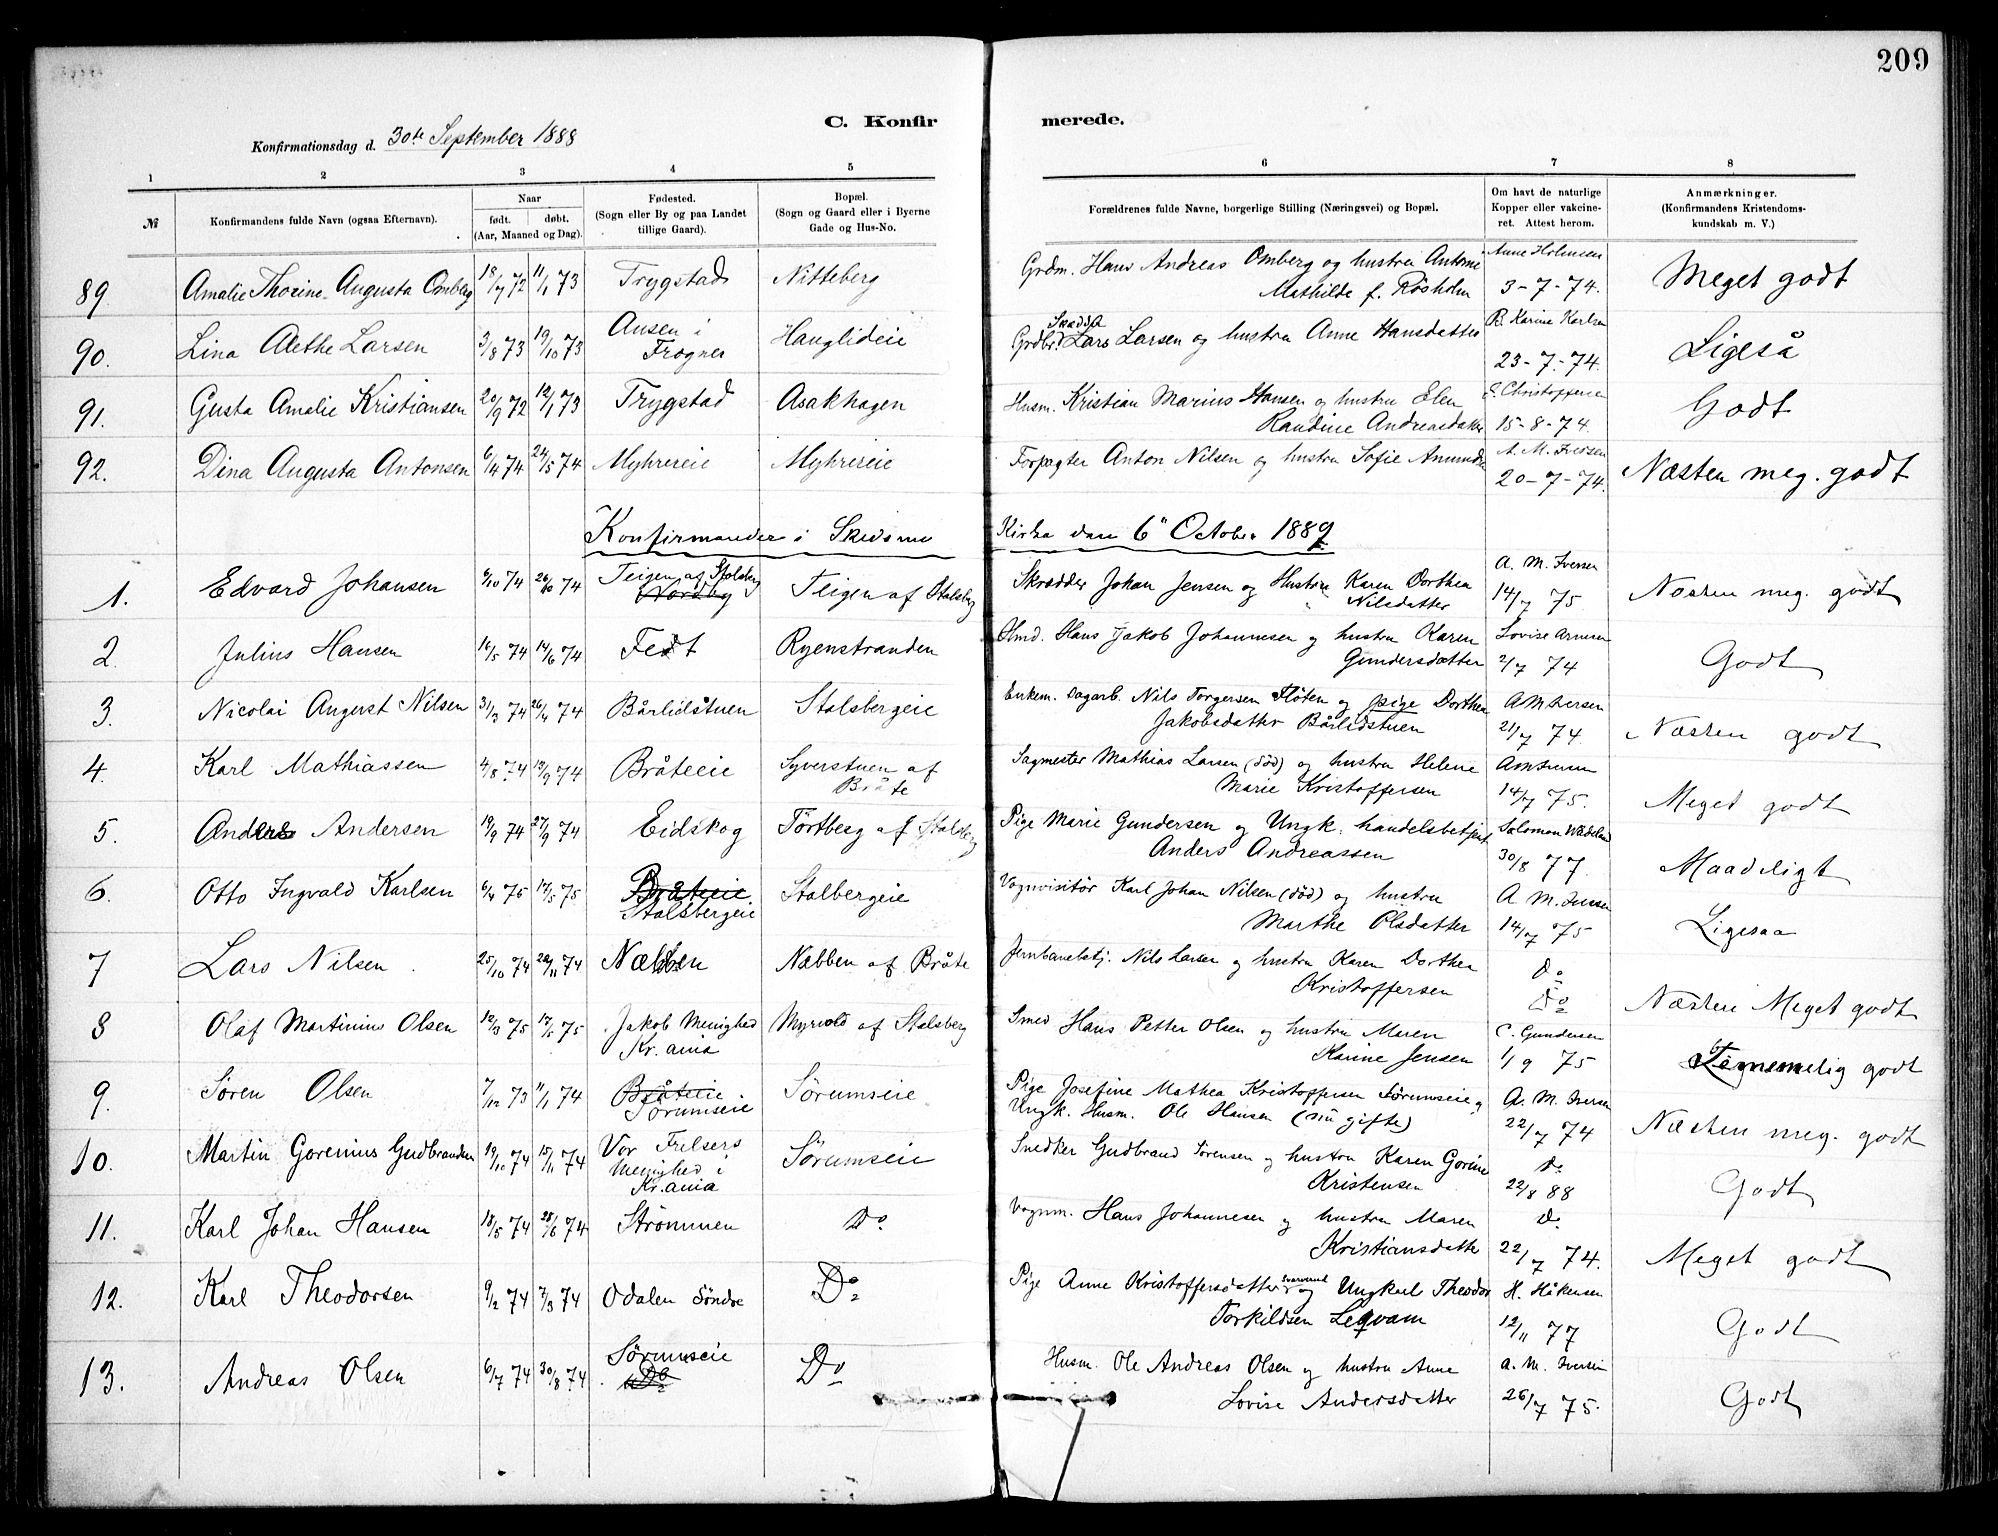 209
C. Konfirmerede.
Konfirmationsdag d. 30te September 1888
1 2 3 4 5 6 7 8
№ Konfirmandens fulde Navn (ogsaa Efternavn). Naar født. døbt. (Aar, Maaned og Dag). Fødested. (Sogn eller By og paa Landet tillige Gaard). Bopæl. (Sogn og Gaard eller i Byerne Gade og Hus-No. Forældrenes fulde Navne, borgerlige Stilling (Næringsvei) og Bopæl. Om havt de naturlige Kopper eller vaccineret. Attest herom. Anmærkninger. (Konfirmandens Kristendomskundskab m. V.)
89 Amalie Thorine Augusta Omberg 18/7 72 11/1 73 Trygstad Nitteberg Grdm. Hans Andreas Omberg og hustru Antonie Anne Holmsen
Mathilde f. Røsholm 3-7-74. Meget godt
90. Lina Alethe Larsen 3/8 73 19/10 73 Ausen i Frogner Hauglideie Skædda Grdbr. Lars Larsen og hustru Anne Hansdatter R. Karine Karlsen
23-7-74. Ligeså
91. Gusta Amalie Kristiansen 20/9 72 12/1 73 Trygstad Asakhagen Husm. Kristian Marius Hansen og hustru Elen E. Christoffersen
Randine Andreasdatter 15-8-74. Godt
92. Dina Augusta Antonsen 6/4 74 24/5 74 Myhrereie Myhrereie Forpagter Anton Nilsen og hustru Sofie Amunds A. M. Iversen
20-7-74. Næsten meg. godt
Konfirmander i Skedsmo Kirke den 6" October 1889
1. Edvard Johansen 6/10 74 26/10 74 Teigen af Stalsberg Nordby Teigen af Stalsberg Skrædder Johan Jensen og Hustru Karen Dorthea A. M. Iversen
Nilsdatter 14/7 75 Næsten meg. godt
2. Julius Hansen 16/5 74 14/6 74 Fedt Ryenstranden Hmd. Hans Jakob Johannesen og hustru Karen Lovise Arnesen
Gundersdatter 2/7 74 Godt
3. Nicolai August Nilsen 31/3 74 26/4 74 Bårlidstuen Stalsbergeie Enkem. Dagarb. Nils Torgersen Fløten og pige Dorthea A M Iversen
Jakobsdatter Bårlidstuen 21/7 74. Næsten godt
4. Karl Mathiassen 4/8 74 13/9 74 Bråteeie Syverstuen af Bråte Sagmester Mathias Larsen (død) og hustru Helene A M Iversen
Marie Kristoffersen 14/7 75. Meget godt
5. Anders Andersen 19/9 74 27/9 74 Eidskog Tørtberg af Stalsberg Pige Marie Gundersen og Ungk. handelsbetjent Solomon
Anders Andreassen 30/8 77. Maadeligt
6. Otto Ingvald Karlsen 6/4 75 17/5 75 Bråteeie Stalsbergeie Stalbergeie Vognvisitør Karl Johan Nilsen (død) og hustru A. M. Iversen
Marthe Olsdatter 14/7 75 Ligesaa
7 Lars Nilsen. 25/10 74 22/11 74 Næbben Næbben af Bråte Jernbanebetj. Nils Larsen og hustru Karen Dorthea Do
Kristoffersen Do Næsten Meget godt
8 Olaf Martinius Olsen 12/3 75 17/5 75 Jakob Menighed Kr.ania Myrvold af Stalsberg Smed Hans Petter Olsen og hustru Maren C. Gundersen
Karine Jensen 1/9 75 Temmelig godt
9. Søren Olsen 7/12 73 11/1 74 Bråteeie Sørumseie Sørumseie Pige Josefine Mathea Kristoffersen Sørumseie og A. M. Iversen
Ungk. Husm. Ole Hansen (nu gifte) 22/7 74 Næsten meg. godt
10. Martin Gorenius Gudbrandsen 19/10 74 15/11 74 Vor Frelsers Menighed i Kr.ania Sørumseie Snedker Gudbrand Sørensen og hustru Karen Gorine Do
Kristensen 22/8 88 Godt
11. Karl Johan Hansen 18/5 74 28/6 74 Strømmen Do Vognm. Hans Johannesen og hustru Maren Do
Kristiansdatter 22/7 74. Meget godt
12. Karl Theodorsen 9/2 74 7/3 74 Odalen Søndre Do Pige Anne Kristoffersdatter og Ungkarl Theodor H. Håkensen
Torkildsen Leqvam 12/11 77 Godt
13. Andreas Olsen 6/7 74 30/8 74 Sørumseie Do Do Husm. Ole Andreas Olsen og hustru Anne A. M. Iversen
Lovise Andersdatter 26/7 75. Godt